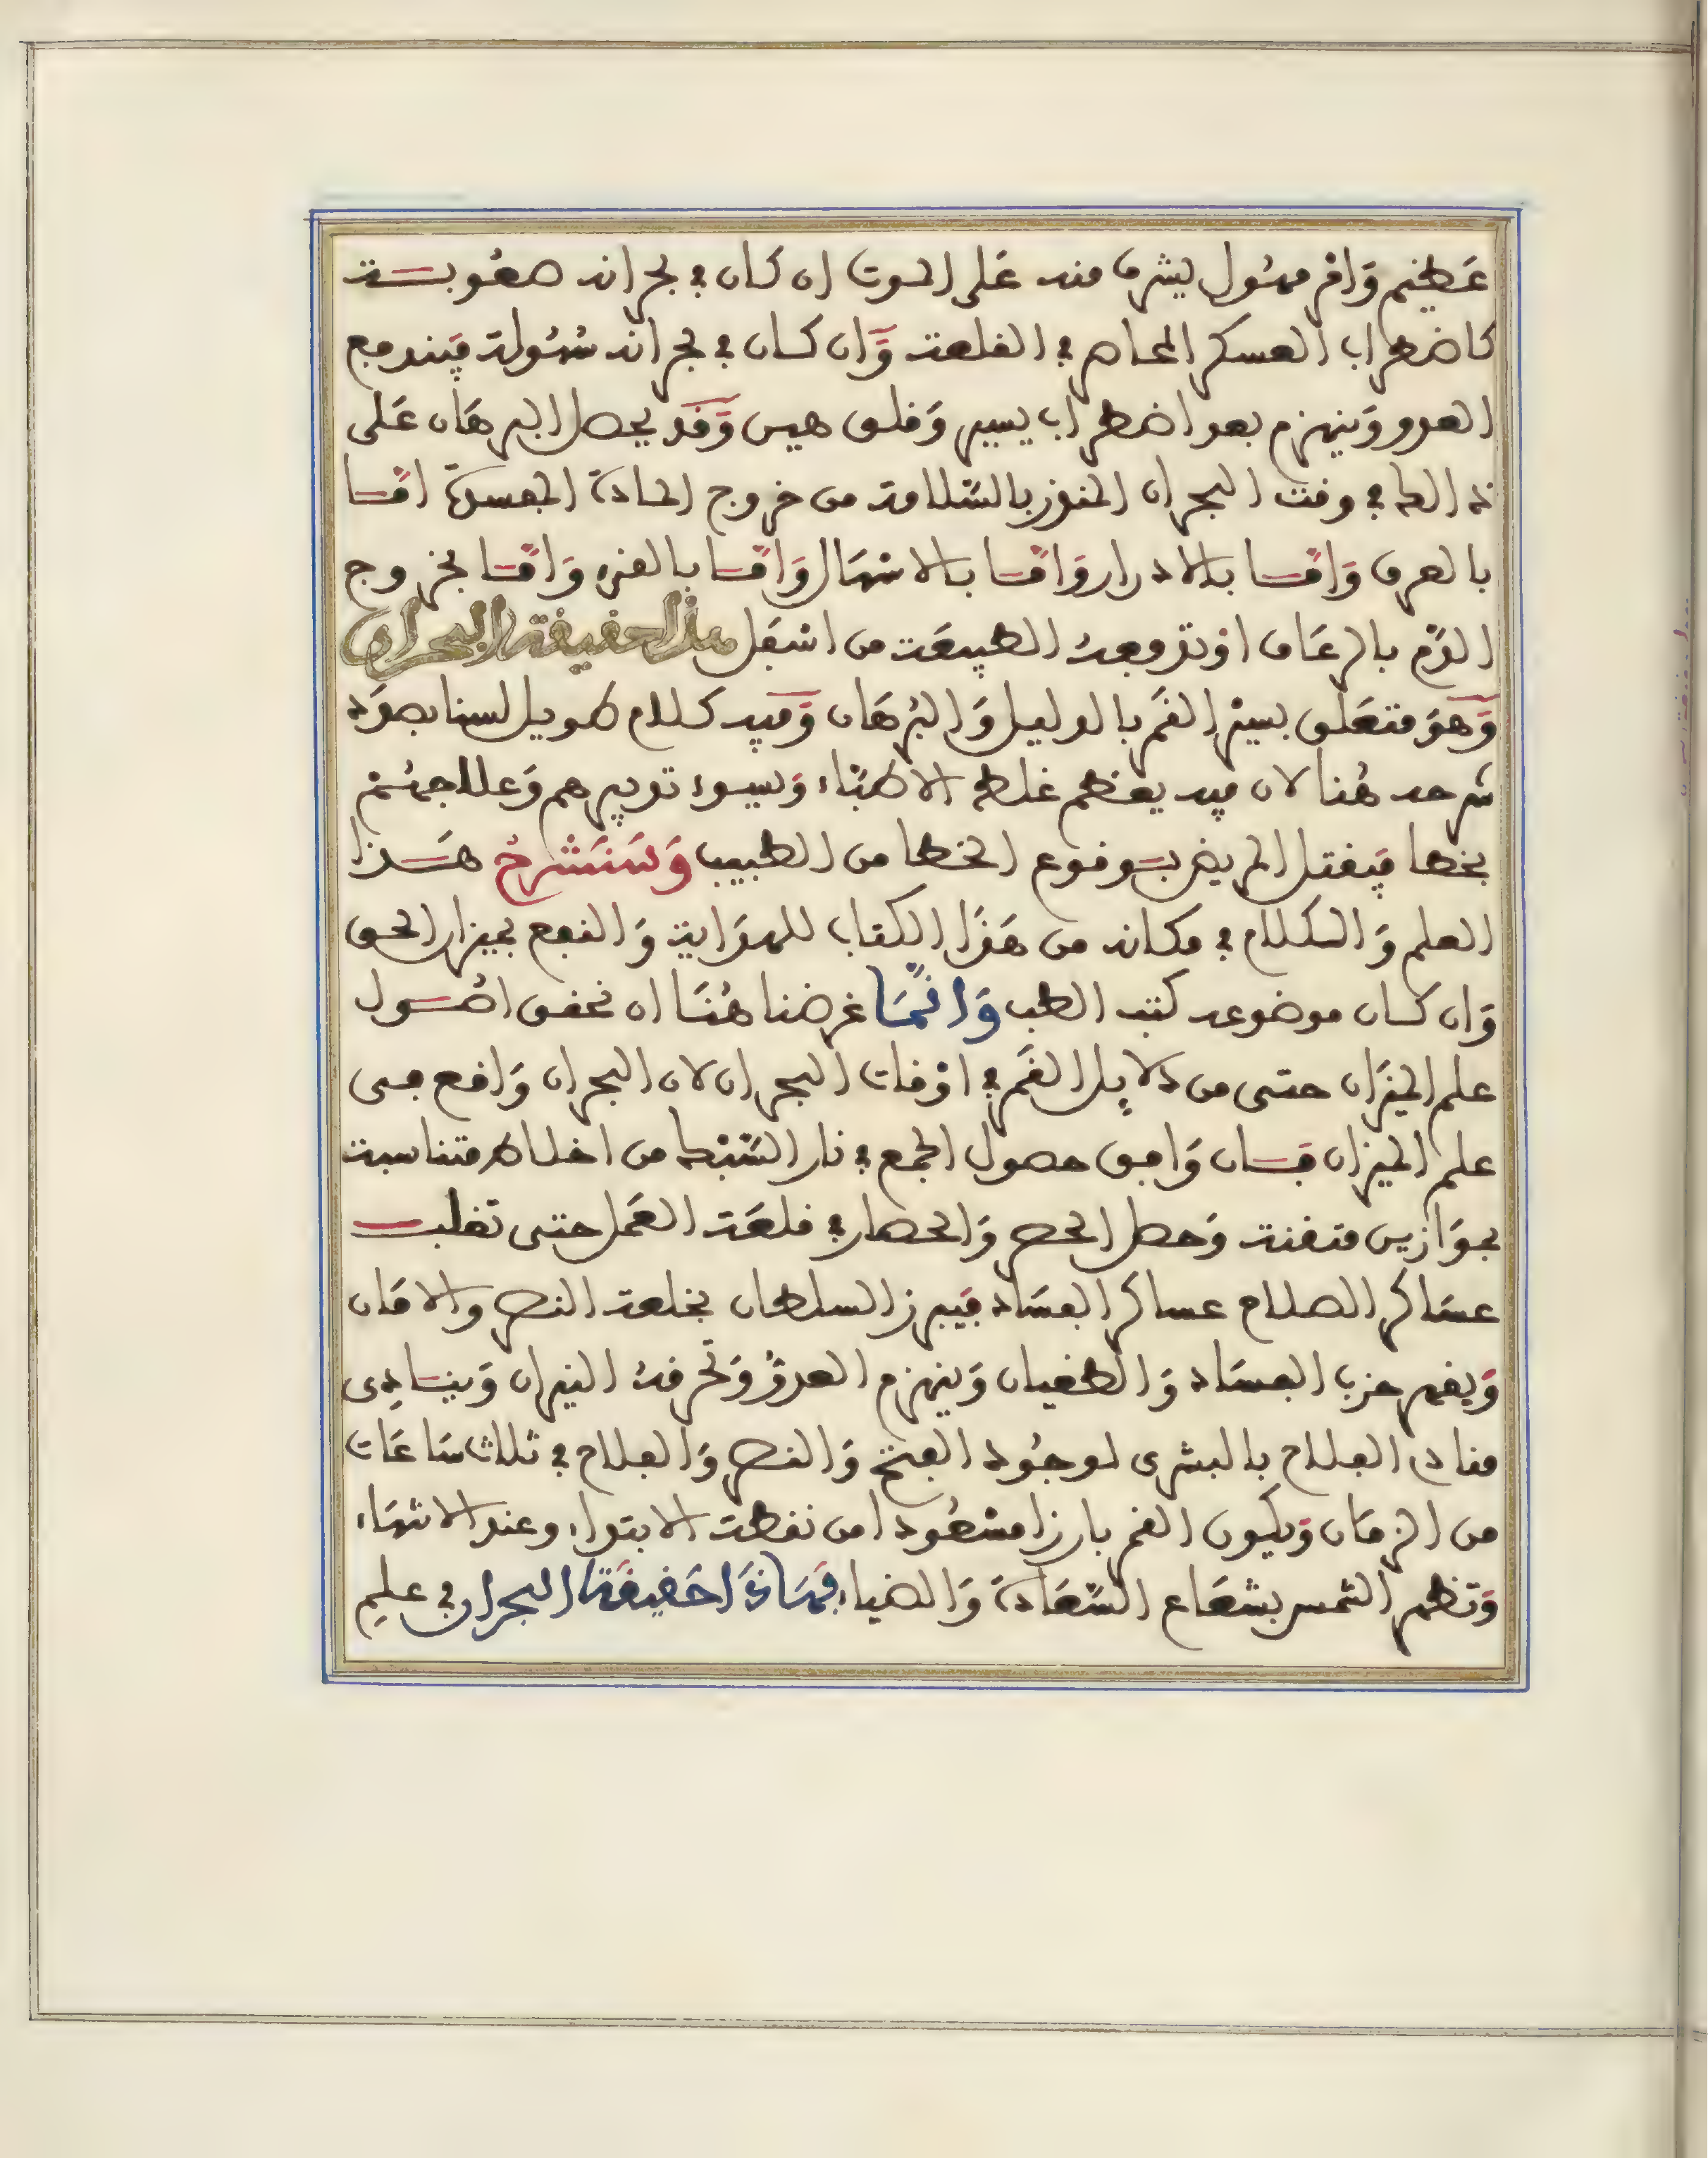 عَظيم وَامر مهُول يشرف منه عَلى الموت ان كان في بحرانه صعُوبـــة
كاضطراب العسكر المحاصر في القلعة وَّان كـان في بحرانه سُهُولة فيندفع
العدو وَينهزم بعد اضطراب يسير وَقلق هين وَّقَد يحصل البرهَان عَلى
ذلك في وقت البحران المنذر بالسّلامة من خروج المادة المفسدة امّـا
بالعرق وَامّـا بالادرار وَامّـا بالاسْهَال وَامّـا بالقىء وَامّـا بخروج
الدّم بالرعَاف اوْ تدفعهُ الطبيعَة من اسْفَل هذا حقيقة البحران
وَّهوَ متعَلق بسيْر القَمر بالدليل وَالبُرهَان وَّفيه كلام طويل لسنا بصدَد
شرحه هُنا لان فيه يعظم غلط الاطبّاء وَيسوء تدبيرهم وَعلاجهُم
بخطا فيقتل المريض بــوقوع الخطا من الطبيب وَسَنَشْرحُ هَــذا
العلم وَالكلام في مكانه من هَذَا الكتاب للهدَاية وَالنفع بميزان الحق
وَان كـان موضوعه كتب الطب وَانّمَا غرضنا هُنَا ان نحقق اصُـول
علم الميزَان حتى من دلايل القَمر في اوْقات البحران لان البحران وَاقع في
علم الميزان فـان وَافق حصول الجمع في نار السّبْك من اخلاط متناسبة
بموَازين متقنة وَحصل الحصر وَالحصار في قلعَة العَمل حتى تغلبــ
عسَاكر الصلاح عساكر الفسَاد فيبرز السلطان بخلعة النصر والامَان
وَيقهر حزب الفسَاد وَالطغيان وَينهزم العدوُّ وَتحرقهُ النيران وَينـادِى
مناد الفلاح بالبشرى لوجُود الفتح وَالنصر وَالفلاح في ثلاث سَاعَات
من الزمَان وَيكون القمر بارزا مسْعُودا من نقطة الابتداء وعند الانتهَاء
وَتظهر الشمس بشعَاع السّعَادة وَالضياء فهَذَا حَقيقَة البحران في علمِ